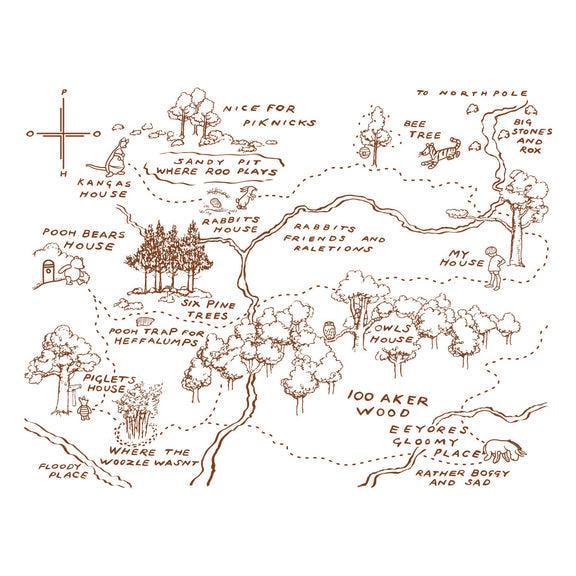 TO NORTH POLE
P
O O
H
NICE FOR
PIKNICKS
BEE
TREE
BIG
STONES
AND
ROX
SANDY PIT
WHERE ROO PLAYS
KANGAS
HOUSE
RABBITS
HOUSE
RABBITS
FRIENDS AND
RALETIONS
POOH BEARS
HOUSE
MY
HOUSE
SIX PINE
TREES
POOH TRAP FOR
HEFFALUMPS
OWLS
HOUSE
PIGLETS
HOUSE
100 AKER
WOOD
EEYORES
GLOOMY
PLACE
WHERE THE
WOOZLE WASNT
FLOODY
PLACE
RATHER BOGGY
AND SAD